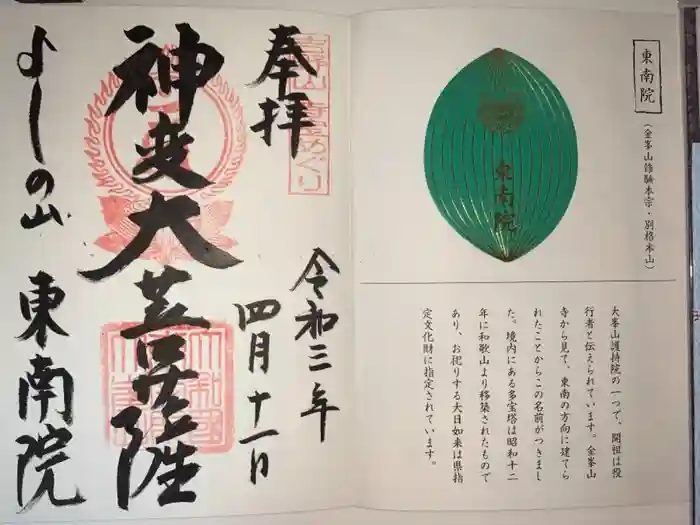 東南院
(金峯山修験本宗・別格本山)
東南院
大峯山護持院の一つで、開祖は役
行者と伝えられています。金峯山
寺から見て、東南の方向に建てら
れたことからこの名前がつきまし
た。境内にある多宝塔は昭和十二
年に和歌山より移築されたもので
あり、お祀りする大日如来は県指
定文化財に指定されています。
奉拝
令和三年
四月十一日
神変大菩薩
よしの山 東南院